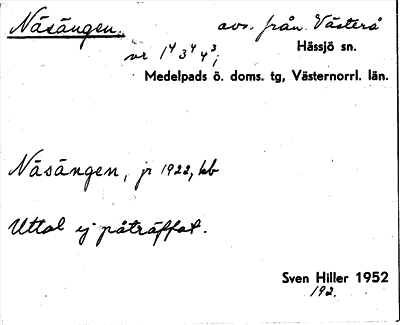 Näsängen. avs. från Västerå
nr 1⁴ 3⁴ 4³; Hässjö sn.
Medelpads ö. doms. tg, Västernorrl. län.
Näsängen, jr 1922, kb
Uttal ej påträffat.
Sven Hiller 1952
192.